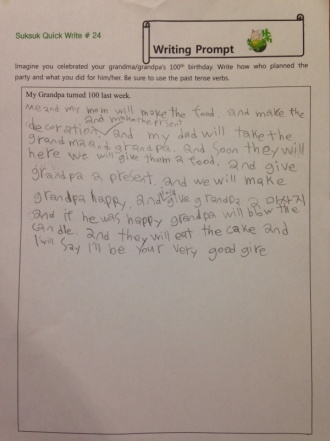 Suksuk Quick Write # 24
Writing Prompt
Imagine you celebrated your grandma/grandpa's 100th birthday. Write how who planned the
party and what you did for him/her. Be sure to use the past tense verbs.
My Grandpa turned 100 last week.
me and my mom will make the food. and make the
and make the present
decoration, and my dad will take the
grandma and grandpa. and soon they will
here we will give them a food. and give
grandpa a present. and we will make
grandpa happy. and give grandpa a 마사지
and if he was happy grandpa will blow the
candle. and they will eat the cake and
I will say I'll be your very good girl